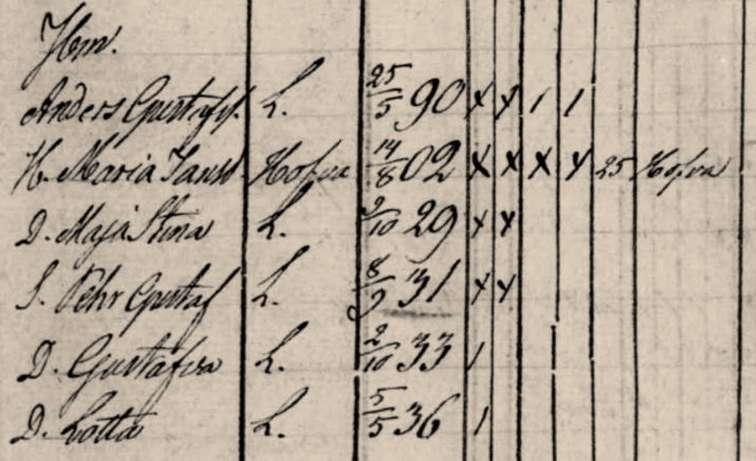 Hm.
Anders Gustafss. L. 25/5 90 x x 1 1
H. Maria Jansd. Hofva 14/8 02 x x x x 25 Hofva
D. Maja Stina L. 9/10 29 x x
S. Pehr Gustaf L. 8/9 31 x x
D. Gustafva L. 2/10 33 1
D. Lotta L. 5/5 36 1